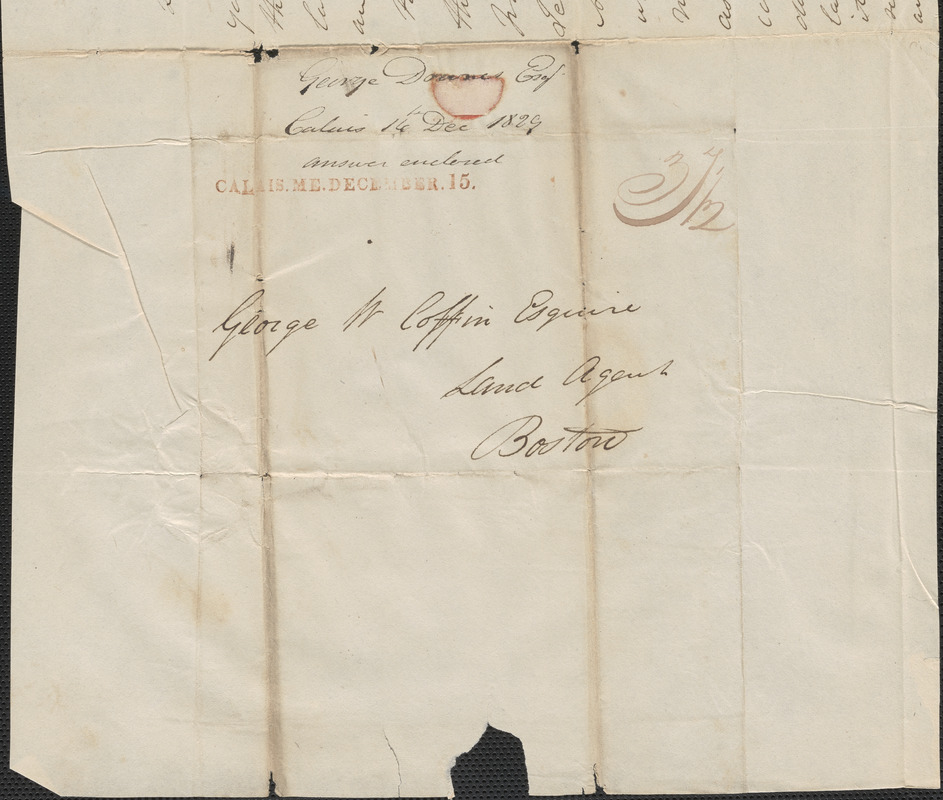 George Downes Esqr
Calais 14th Dec 1829
answer enclosed
CALAIS.ME.DECEMBER.15.
37 1/2
George W Coffin Esquire
Land Agent
Boston